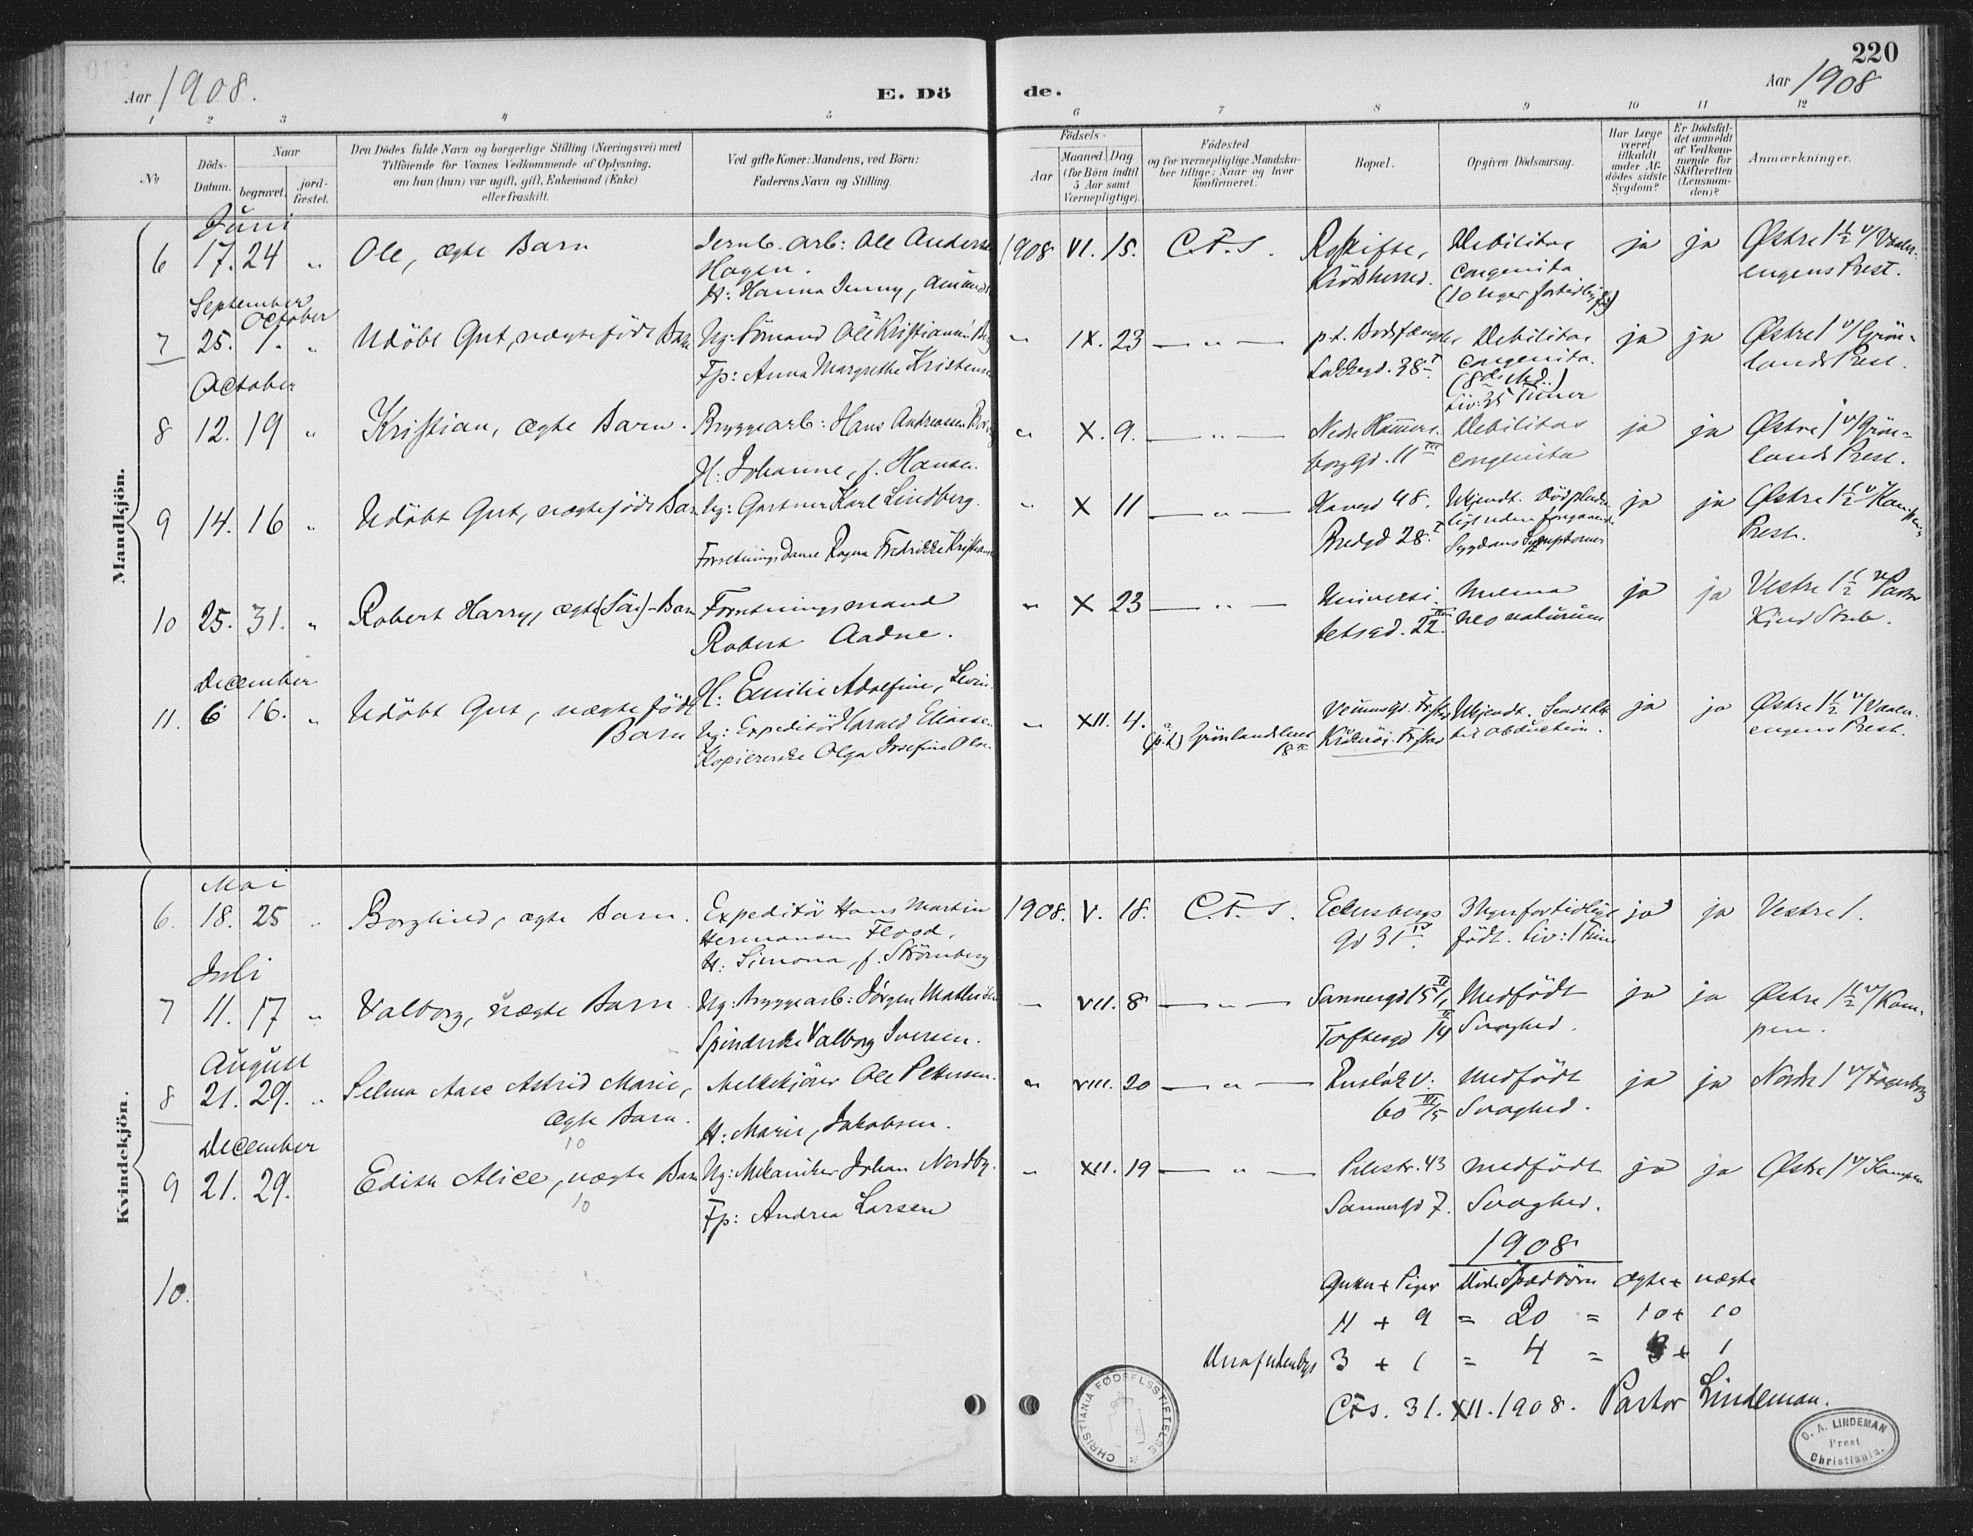 220
Aar 1908.
E. Döde.
Aar 1908
1 2 3 4 5 6 7 8 9 10 11 12
№
Döds-Datum.
Naar
begravet.
jord-fæstet.
Den Dödes fulde Navn og borgerlige Stilling (Næringsvei) med
Tilföiende for Voxnes Vedkommende af Oplysning,
om han (hun) var ugift, gift, Enkemand (Enke)
eller fraskilt.
Ved gifte Koner: Mandens, ved Börn:
Faderens Navn og Stilling.
Födsels-
Aar
Maaned. Dag
(for Börn indtil
5 Aar samt
Værnepligtige).
Födested
og for værnepligtige Mandska-
ber tillige: Naar og hvor
konfirmeret.
Bopæl.
Opgiven Dödsaarsag.
Har Læge
været
tilkaldt
under Af-
dödes sidste
Sygdom?
Er Dödsfal-
det anmeldt
af Vedkom-
mende for
Skifteretten
(Lensman-
den)?
Anmærkninger.
Mandkjön.
Juni
6 17. 24 " Ole, ægte Barn
Jernb. arb: Ole
Hagen.
H: Hanna Jenny,
1908 VI. 15. C.F.S.
Krödsherred.
Debilitas
congenita
(10 Uger fortidlig
ja ja Østre 1 ½ v/ Vaaler-
engens Prest.
September
October
7 25. 1. " Udöbt Gut, uægtefödt Barn
Ug: Sömand Ole Kristiansen
Fp: Anna Margrethe
" IX. 23 — " —
p.t. Bodsfængs
Lakkegd. 38
Debilitas
congenita.
Liv: 35 Timer
ja ja Østre 1 v/ Grön-
lands Prest.
October
8 12. 19 " Kristian, ægte Barn.
Bryggearb: Hans Andreasen
H. Johanne, f. Hansen.
" X. 9. — " —
Nedre Hammers-
borggd. 11
Debilitas
congenita
ja ja Østre 1 v/ Grön-
lands Prest.
9 14. 16 " Udöbt Gut, uægtefödt Barn
Ug: Gartner Karl Lindberg.
Forretnings Dame Ragna Fredrikke
" X 11 — " —
Havegd 48.
Bredgd 28.
Ukjendt. Död plud-
ligt uden forgaaende
Sygdoms Symptomer
ja ja Østre 1 ½ v/ Kampens
Prest.
10 25. 31. " Robert Harry, ægte (Sön)-Barn
Forretningsmand
Robert Aadne.
H: Emilie Adolfine,
" X 23 — " —
Universi-
tetsgd. 22.
neonatorum
ja ja Vestre 1 ½ v/ Pastor
December
11. 6 16. " Udöbt Gut, uægte födt
Barn
Ug: Expeditör Harald
Kopistinde Olga Josefine
" XII. 4. (p.t.) Grönlandsleret
18
Ukjendt. Sendt
til obduction.
ja ja Østre 1 ½ v/ Vaaler-
engens Prest.
Kvindekjön.
Mai
6. 18. 25 " Borghild, ægte Barn.
Expeditör Hans Martin
Hermansen Flood,
H: Simona, f. Strömberg
1908. V. 18. C.F.S.
Eilertsbergs
gd 31
3 Uger fortidligt
födt. Liv: 1 Time
ja ja Vestre 1.
Juli
7 11. 17 " Valborg, uægte Barn
Ug: Bryggearb: Jörgen Mathisen
Spinderske Valborg Iversen.
" VII. 8 — " —
Sannergd 15
Toftesgd 14
Medfödt
Svaghed.
ja ja Østre 1 ½ v/ Kam-
pen.
August
8 21. 29. " Selma Aase Astrid Marie,
ægte Barn.
10
Melkekjörer Ole Pettersen.
H: Marie, Jakobsen.
" VIII. 20 — " —
Ruslök v.
60
Medfödt
Svaghed.
ja ja Nordre 1 v/ Fagerborg
December
9 21. 29. Edith Alice, uægte Barn
10
Ug: Mekaniker Johan Nordby.
Fp: Andrea Larsen
" XII. 19 — " —
Pilestr. 43
Sannergd 7.
Medfödt
Svaghed.
ja ja Østre 1 v/ Kampen
10.
1908
Gutter + Piger Döde Spædbörn ægte + uægte
11 + 9 = 20 = 10 + 10
Deraf utenbys 3 + 1 = 4 = 3 + 1
CFS. 31. XII. 1908. Pastor Lindeman.
CHRISTIANIA FØDSELSSTIFTELSE
O. A. LINDEMAN
Prest
Christiania.